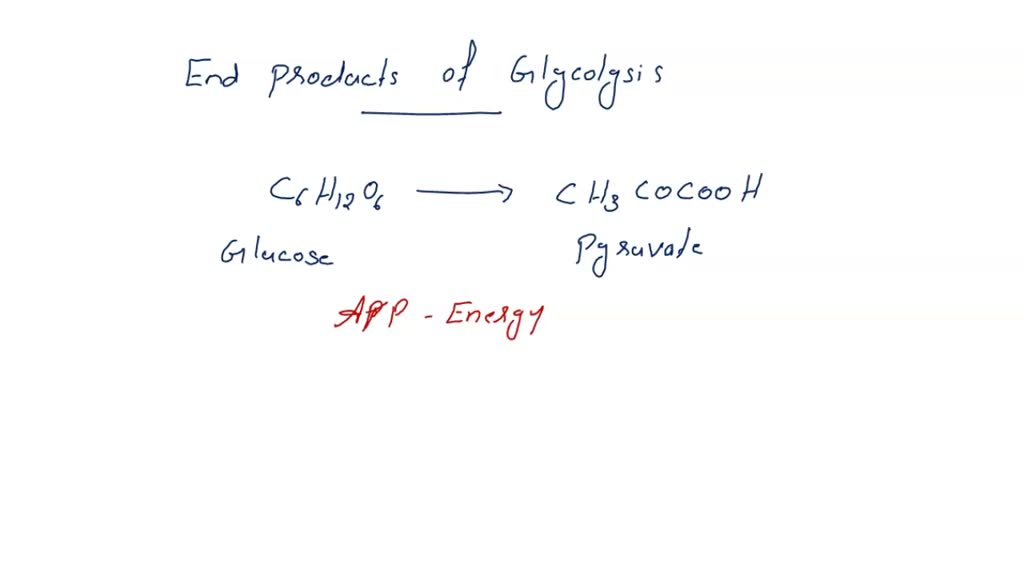 End products of Glycolysis
C6H12O6 → CH3COCOOH
Glucose Pyruvate
ATP - Energy